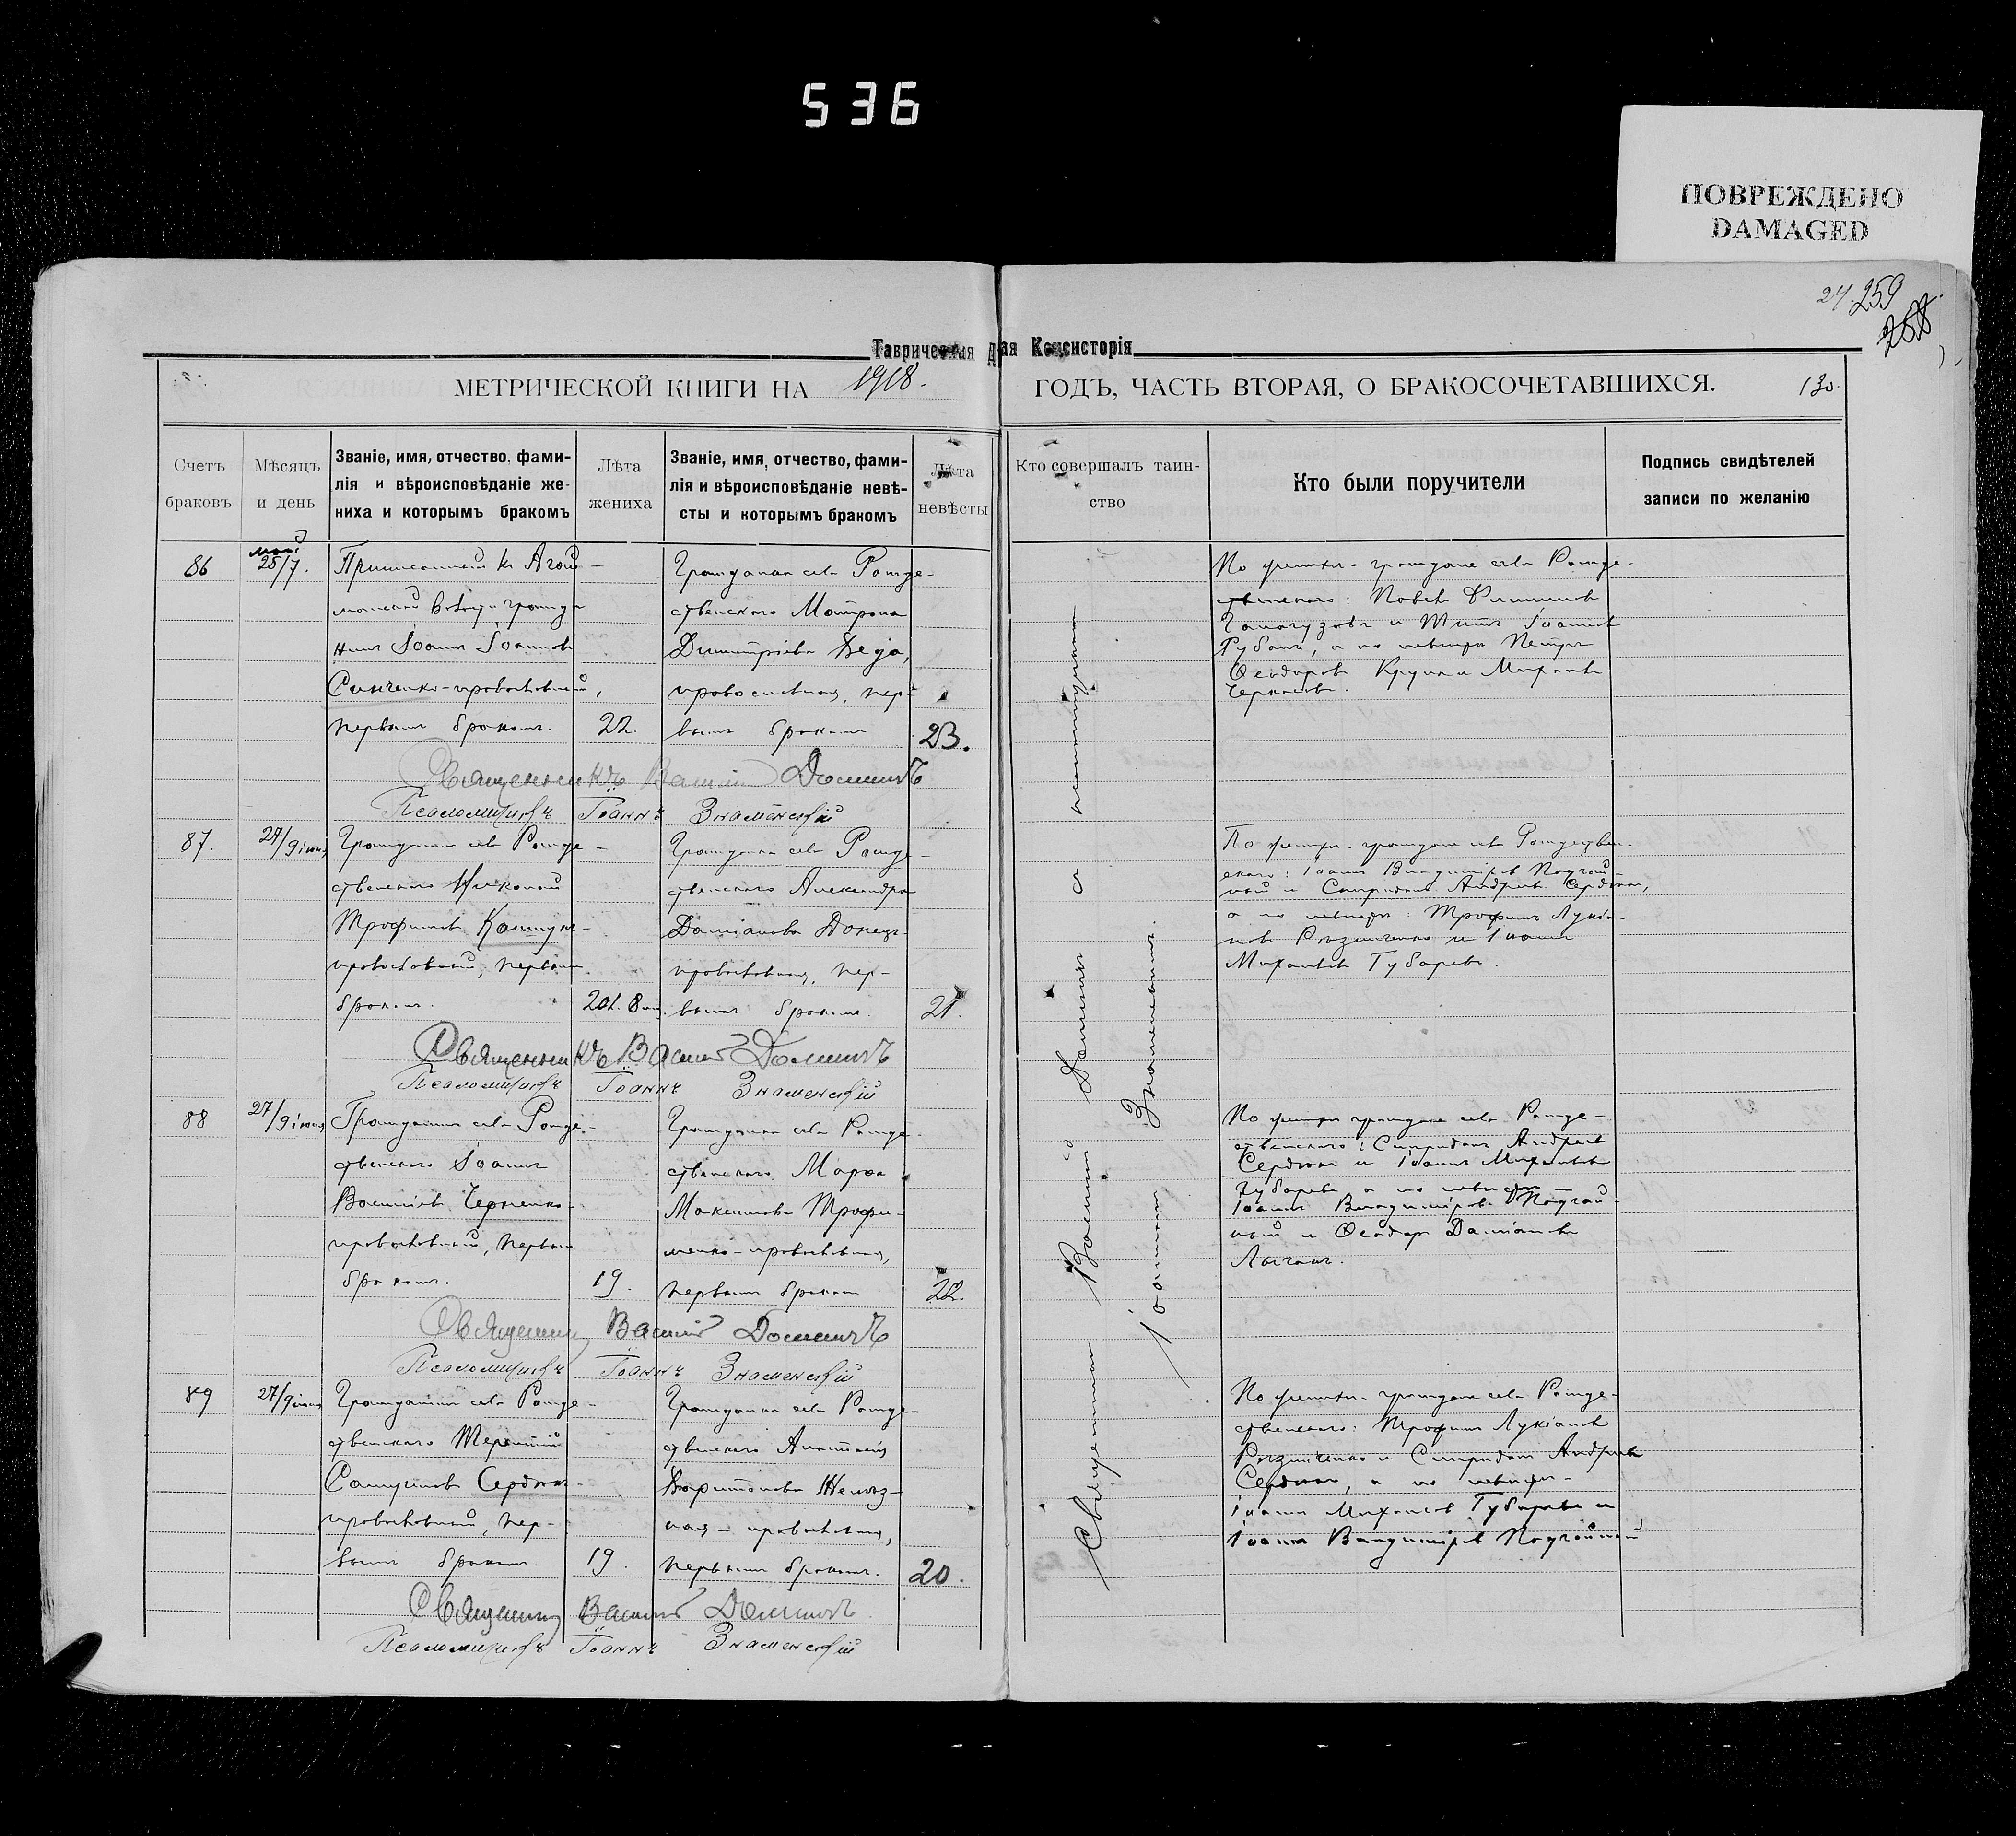 536
ПОВРЕЖДЕНО
DAMAGED
24. 259
258
Таврическая Д ая Консисторія
МЕТРИЧЕСКОЙ КНИГИ НА 1918. ГОДЪ, ЧАСТЬ ВТОРАЯ, О БРАКОСОЧЕТАВШИХСЯ. 130.
Счетъ браковъ
Мѣсяцъ и день
Званіе, имя, отчество, фами-
лія и вѣроисповѣданіе же-
ниха и которымъ бракомъ
Лѣта жениха
Званіе, имя, отчество, фами-
лія и вѣроисповѣданіе невѣ-
сты и которымъ бракомъ
Лѣта невѣсты
Кто совершалъ таин-
ство
Кто были поручители
Подпись свидѣтелей
записи по желанію
86
май
25/7.
Іоаннъ Іоанновъ
Синченко - православный,
первымъ бракомъ.
22.
Гражданка села Рожде-
ственскаго Матрона
Димитріева Деja,
православная, пер-
вымъ бракомъ
23.
По женихѣ - граждане села Рожде-
ственскаго: Павелъ Филипповъ
и Титъ Іоанновъ
Рубанъ, а по невѣстѣ Петръ
Ѳеодоровъ
Священникъ Василій Доминъ
Псаломщикъ Іоаннъ Знаменскій
87.
27/9 іюня
Гражданинъ села Рожде-
ственскаго Николай
Трофимовъ
православный, первымъ
бракомъ.
20 л. 8 м.
Гражданка села Рожде-
ственскаго Александра
Даміанова Донецъ-
православная, пер-
вымъ бракомъ.
21.
По женихѣ - граждане села Рождествен-
скаго: Іоаннъ Владиміровъ Подгай-
ный и Спиридонъ Андреевъ Сердюкъ,
а по невѣстѣ: Трофимъ Лукіа-
новъ и Іоаннъ
Михаиловъ Губаревъ.
Священникъ Василій Доминъ
Псаломщикъ Іоаннъ Знаменскій
88
27/9 іюня
Гражданинъ села Рожде-
ственскаго Іоаннъ
Василіевъ Черненко-
православный, первымъ
бракомъ.
19.
Гражданка села Рожде-
ственскаго Марѳа
Максимова Трофи-
менко - православная,
первымъ бракомъ
22.
По женихѣ граждане села Рожде-
ственскаго: Спиридонъ Андреевъ
Сердюкъ и Іоаннъ Михаиловъ
Губаревъ, а по невѣстѣ -
Іоаннъ Владиміровъ Подгай-
ный и Ѳеодоръ Даміановъ
Священникъ Василій Доминъ
Псаломщикъ Іоаннъ Знаменскій
89
27/9 іюня
Гражданинъ села Рожде-
ственскаго Терентій
Самуиловъ Сердюкъ-
православный, пер-
вымъ бракомъ.
19.
Гражданка села Рожде-
ственскаго Анастасія
Харитонова Желѣз-
ная - православная,
первымъ бракомъ.
20.
По женихѣ - граждане села Рожде-
ственскаго: Трофимъ Лукіановъ
и Спиридонъ Андреевъ
Сердюкъ, а по невѣстѣ -
Іоаннъ Михаиловъ Губаревъ и
Іоаннъ Владиміровъ Подгайный
Священникъ Василій Доминъ
Псаломщикъ Іоаннъ Знаменскій
Священникъ Василій Доминъ съ псаломщикомъ
Іоанномъ Знаменскимъ.